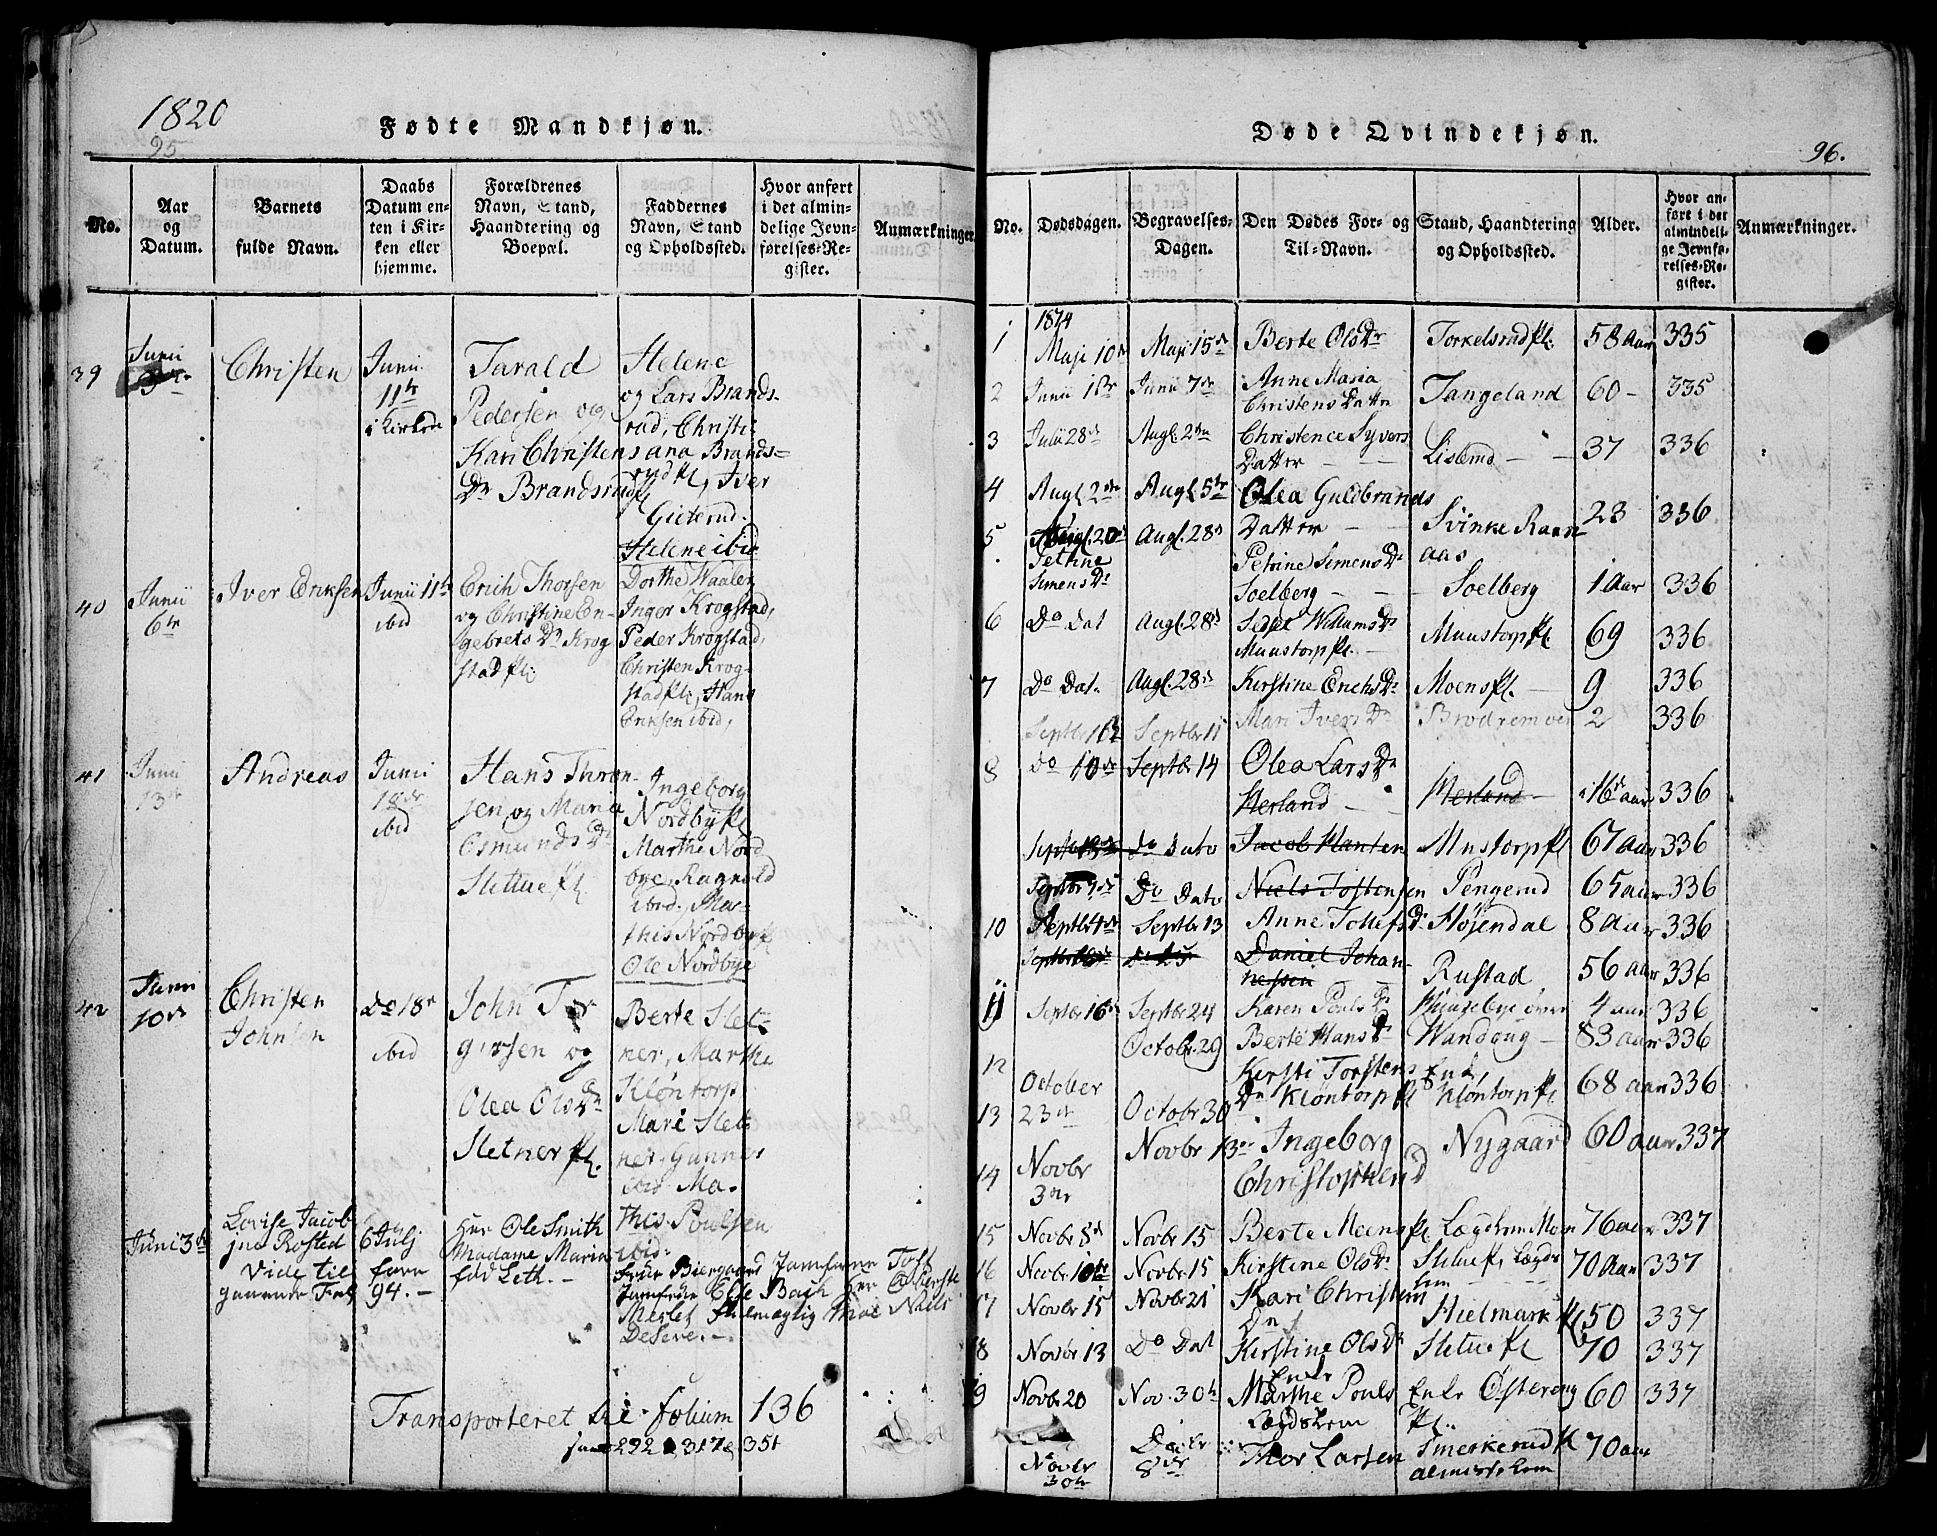 1820
95
Fødte Mandkjøn.
No.
Aar
og
Datum.
Barnets
fulde Navn.
Daabs
Datum en-
ten i Kir-
ken eller
hjemme.
Forældrenes
Navn, Stand,
Haandtering og
Boepæl.
Faddernes
Navn, Stand
og Opholdssted.
Hvor anført
i det almin-
delige Jevn-
førelses-Re-
gister.
Anmærkninger.
39
Junii
Christen
Junii
11te
i Kirken
Tarald
Pedersen og
Kari Christens
Dr Brandsrudpl
Helene
og Lars Brands-
rud, Christi-
ana Brands-
rudpl, Iver
Gieterud.
Helene ibid
40
Junii
6te
Iver Eriksen
Junii 11te
ibid
Erich Thorsen
og Christine En-
gebrets Dr Krog
stadpl.
Dorthe Waaler
Inger Krogstad,
Peder Krogstad,
Christen Krog-
stadpl, Hans
Eriksen ibid,
41
Junii
13de
Andreas
Junii
18de
ibid
Hans Thron
sen og Maria
Osmunds Dr
Sletue pl.
Ingeborg
Nordbypl
Marthe Nord
bye, Ragnold
ibid. Ma-
this Nordbye
Ole Nordbye
42
Junii
10de
Christen
Johnsen
Do 18de
ibid
John Tor
gersen og
Olea Ols Dr
Sletner pl.
Berte Slet-
ner, Marthe
Kløntorp
Mari Slet-
ner, Gunner
ibid Ma-
this Poulsen
ibid.
Juni 3de
Lovise Jacob
ine Rosted
Vide til
94.
6 Julj
Herr Ole Smith
Madame Maria
fød Leth. -
Transporteret til folium 136
292 317 351
Døde Qvindekjøn.
96.
No.
Dødsdagen.
Begravelses-
Dagen.
Den Dødes For- og
Til-Navn.
Stand, Haandtering
og Opholdssted.
Alder.
Hvor an-
ført i det
almindeli-
ge Jevnfø-
relses-Re-
gister.
Anmærkninger.
1814
1 Maji 10de Maji 15de Berte Ols Dr Torkelsrudpl. 58 Aar 335
2 Junii 1ste Junii 7de Anne Maria
Christens Datter Tangeland 60 - 335
3 Julii 28de Augl. 2den Christence Syvers
Datter Liserud 37 336
4 Augl 2den Augl 5te Olea Guldbrands
Datter Svinke Raasn
aas 23 336
5 Augl. 20de Augl. 28de
Petrine
Simens Dr
Petrine Simens Dr
Soelberg Soelberg 1 Aar 336
6 Do Dat Augl. 28de Sedsel Willums Dr
Muustorp pl. Muustorp pl 69 336
7 Do Dat. Augl. 28de Kirstine Erichs Dr Moens pl. 9 336
Septbr 10de Septbr 11 Mari Ivers Dr Brødremoen 2 336
8 do 10de Septbr 14 Olea Lars Dr
Herland Herland 16 aar 336
do Dato Jacob Hansen Mustorp pl 67 aar 336
Septbr 7de Do Dato Niels Tostensen Pengerud 65 aar 336
10 Septbr 4de Septbr 13 Anne Tollefs Dr Høiendal 8 Aar 336
Daniel Johan-
nessen Rustad 56 aar 336
11 Septbr 16de Septbr 24 Karen Pouls Dr 4 aar 336
12 Octobr. 29 Berte Hans Dr Wandoug 83 aar 336
13 October
23de Octobr 30 Kirsti Torstens
Dr Kløntorp pl Enke,
Kløntorp pl 68 aar 336
14 Novbr
3die Novbr 13de Ingeborg
Christophers D Nygaard 60 aar 337
15 Novbr 8de Novbr 15 Berte Meens pl Lægdslem Moen 76 aar 337
16 Novbr 10de Novbr 15 Kirstine Ols Dr Sletue pl Lægds
lem 70 Aar 337
17 Novbr 15 Novbr 21 Kari Christens
Dr Hielmark pl 50 337
18 Novbr 13 Do Dat Kirstine Ols Dr
Enke Sletue pl 70 337
19 Novbr 20 Nov. 30te Marthe Pouls
Lægdslem Enke Østereng
pl. 60 337
Novbr
30te
Decbr
8de
Thor Larsen Smerkerud pl
almisselem 70 aar